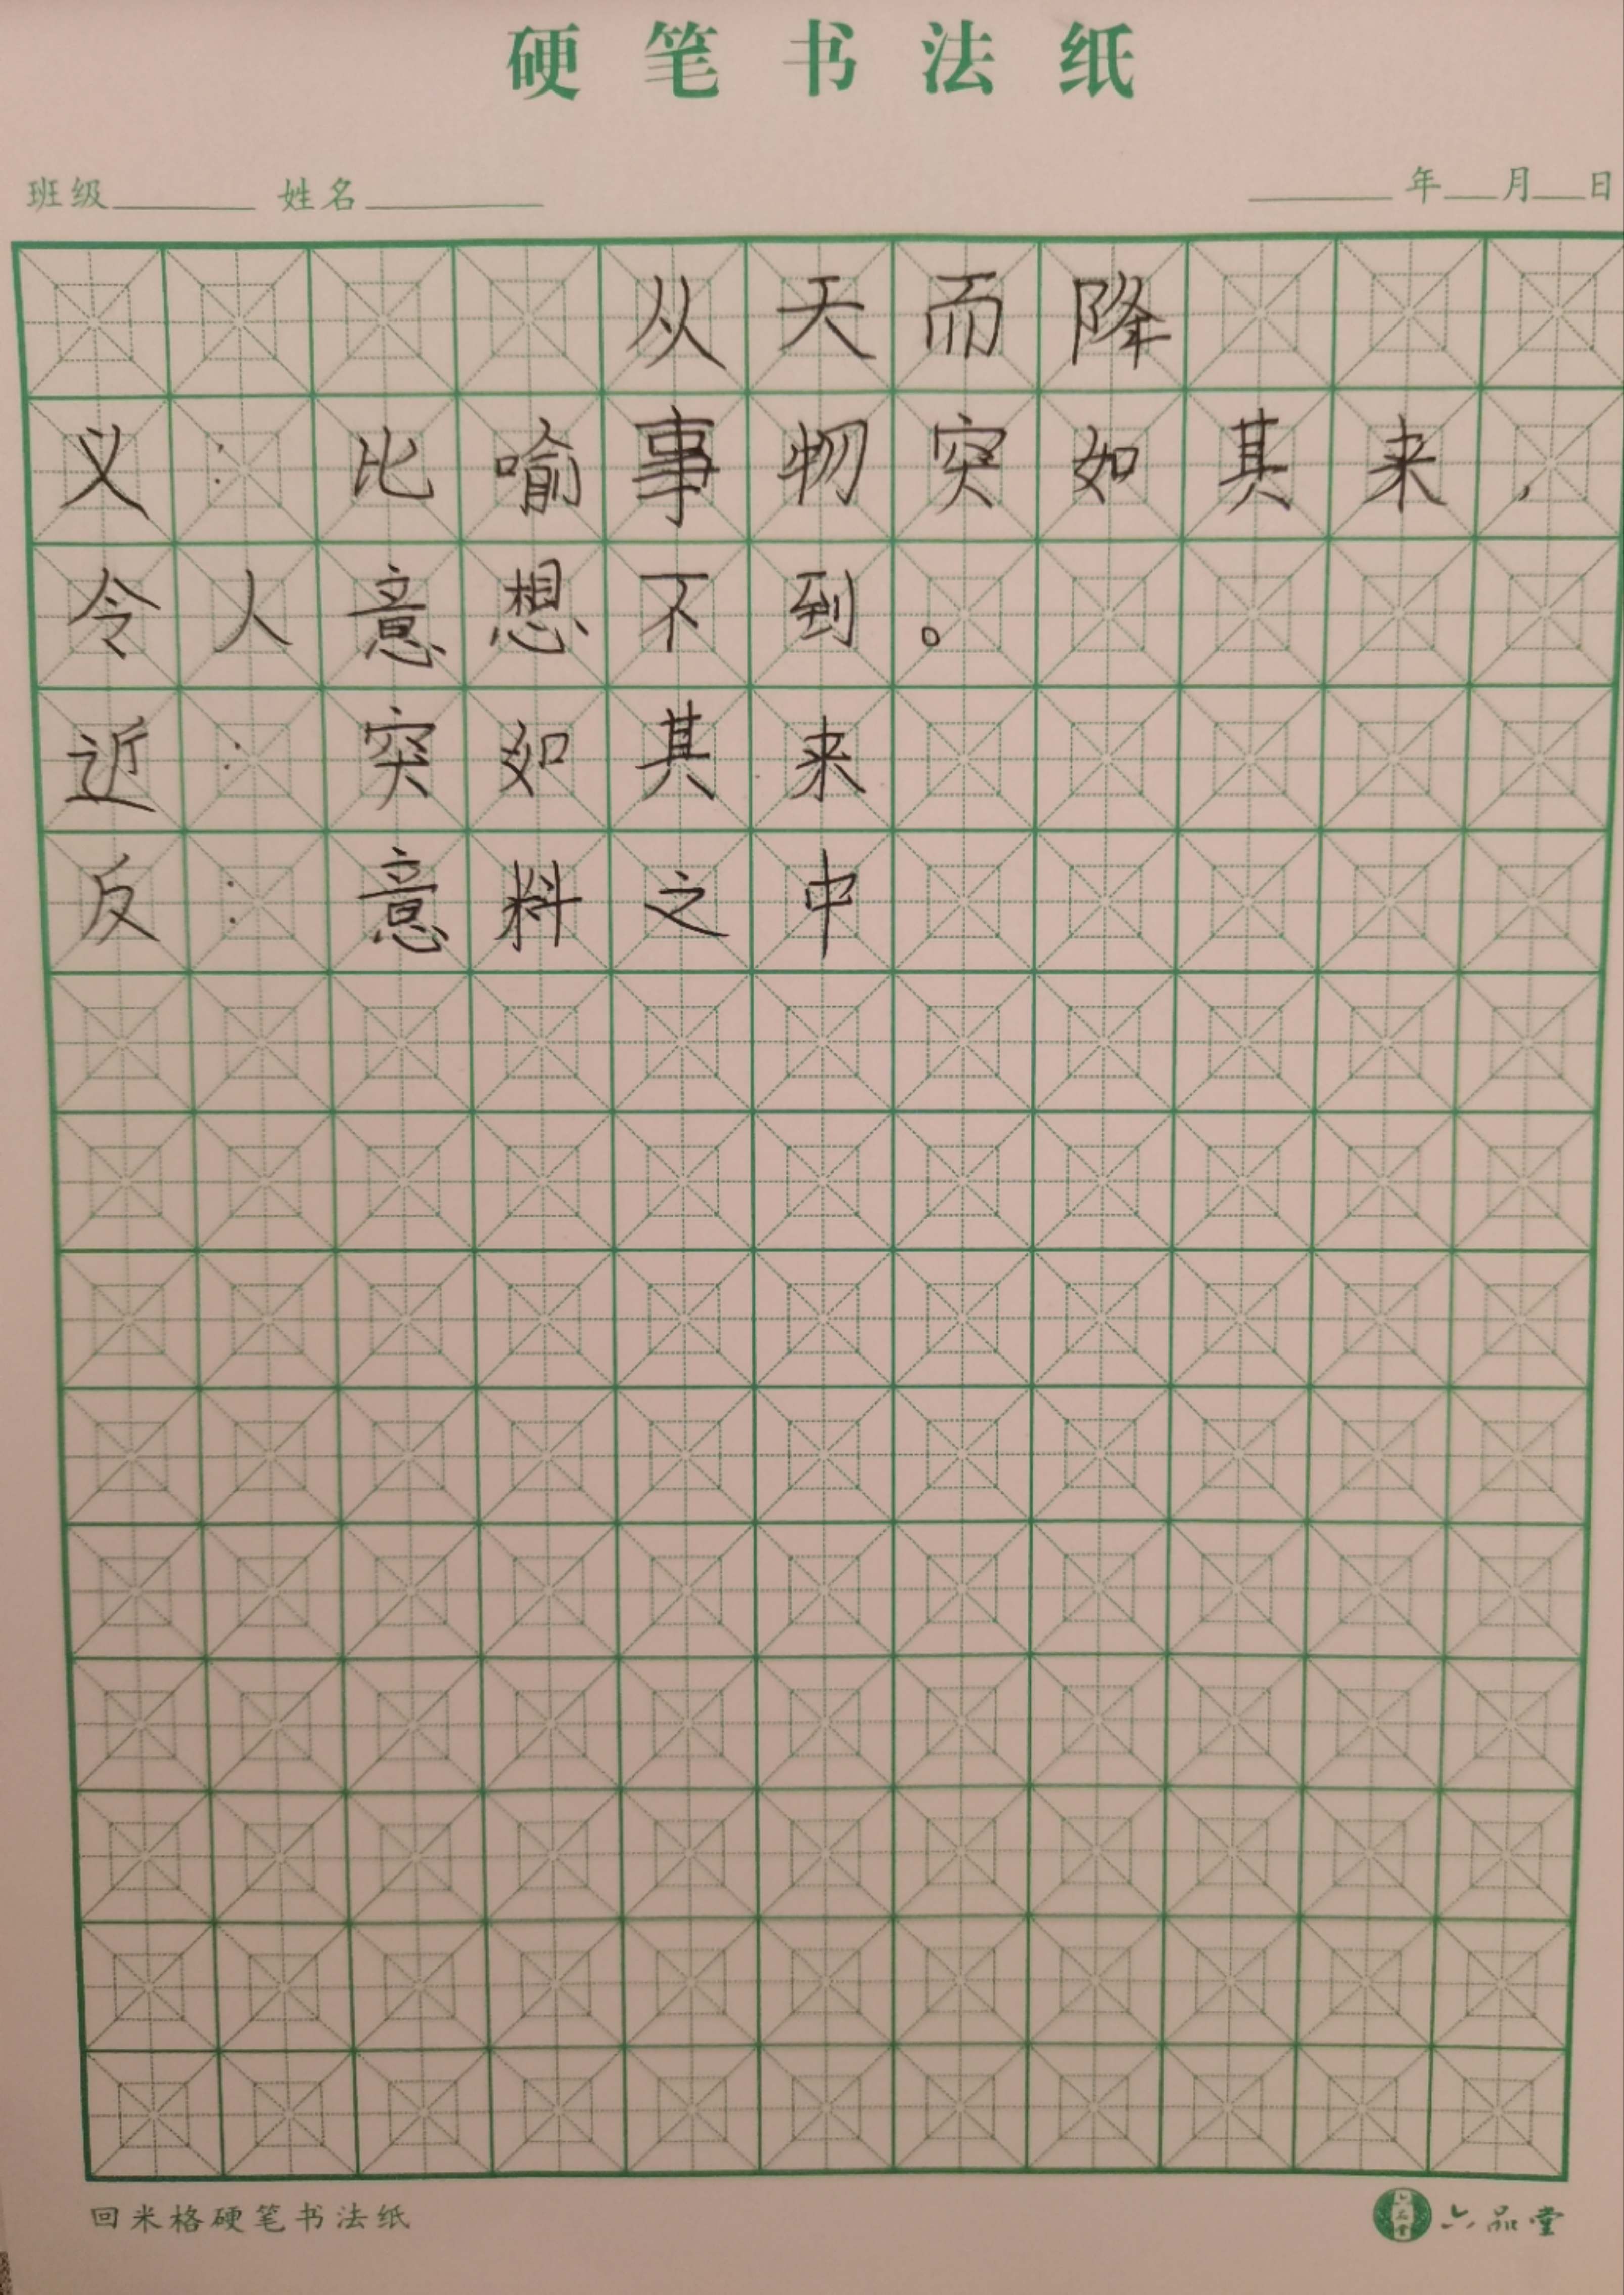 硬笔书法纸
班级 姓名 年 月 日
从天而降
义：比喻事物突如其来，
令人意想不到。
近：突如其来
反：意料之中
回米格硬笔书法纸 六品堂 六品堂